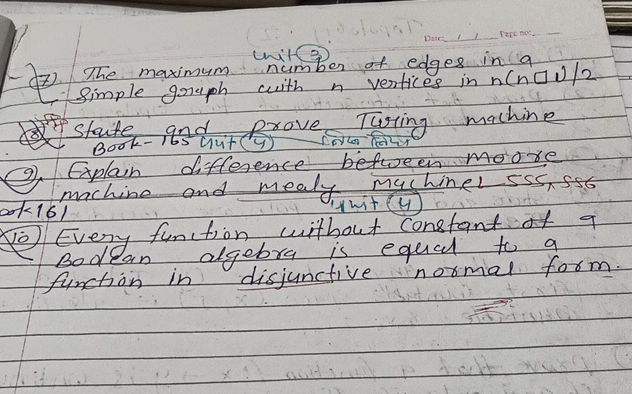 Date / / Page no.
unit ③
⑦ The maximum number of edges in a
simple graph with n vertices in n(n□1)/2
⑧ State and prove Turing machine
Book-165 unit ④
⑨ Explain difference between moore
machine and mealy machine 555, 556
ook 161 unit ④
⑩ Every function without constant of a
Boolean algebra is equal to a
function in disjunctive normal form.